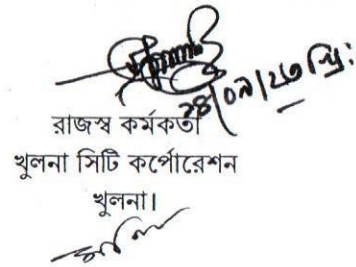 ২৪/০৯/২৩ খ্রি:
রাজস্ব কর্মকর্তা
খুলনা সিটি কর্পোরেশন
খুলনা।